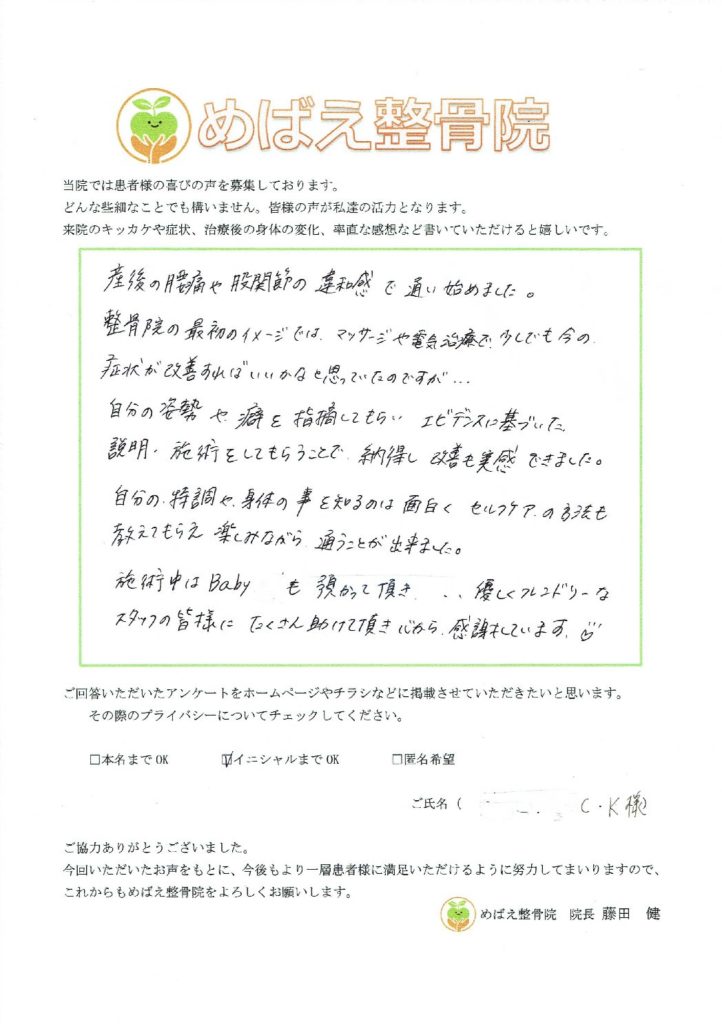 めばえ整骨院
当院では患者様の喜びの声を募集しております。
どんな些細なことでも構いません。皆様の声が私達の活力となります。
来院のキッカケや症状、治療後の身体の変化、率直な感想など書いていただけると嬉しいです。
産後の腰痛や股関節の違和感で通い始めました。
整骨院の最初のイメージでは、マッサージや電気治療で、少しでも今の
症状が改善すればいいかなと思っていたのですが…
自分の姿勢や癖を指摘してもらい エビデンスに基づいた
説明・施術をしてもらうことで、納得し改善も実感できました。
自分の特調や、身体の事を知るのは面白く セルフケアの方法も
教えてもらえ 楽しみながら 通うことが出来ました。
施術中はBaby も 預かって頂き ‥ 優しくフレンドリーな
スタッフの皆様に たくさん助けて頂き 心から感謝しています。
ご回答いただいたアンケートをホームページやチラシなどに掲載させていただきたいと思います。
その際のプライバシーについてチェックしてください。
□本名までOK ☑イニシャルまでOK □匿名希望
ご氏名( C・K様)
ご協力ありがとうございました。
今回いただいたお声をもとに、今後もより一層患者様に満足いただけるように努力してまいりますので、
これからもめばえ整骨院をよろしくお願いします。
めばえ整骨院 院長 藤田 健